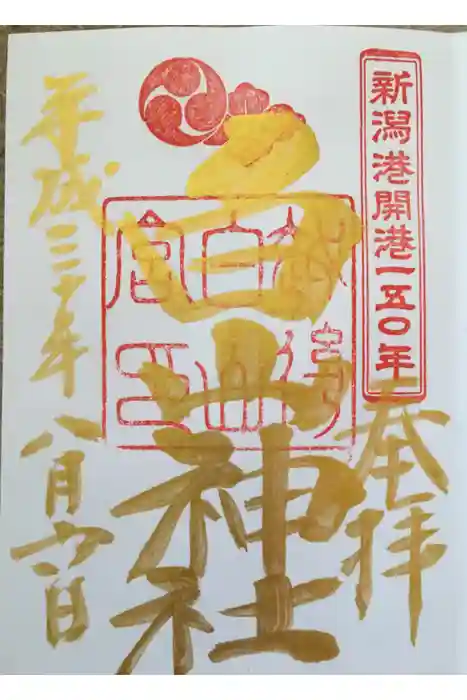 新潟港開港一五〇年
奉拝
白山神社
越後
白山
宮印
平成三十年八月六日